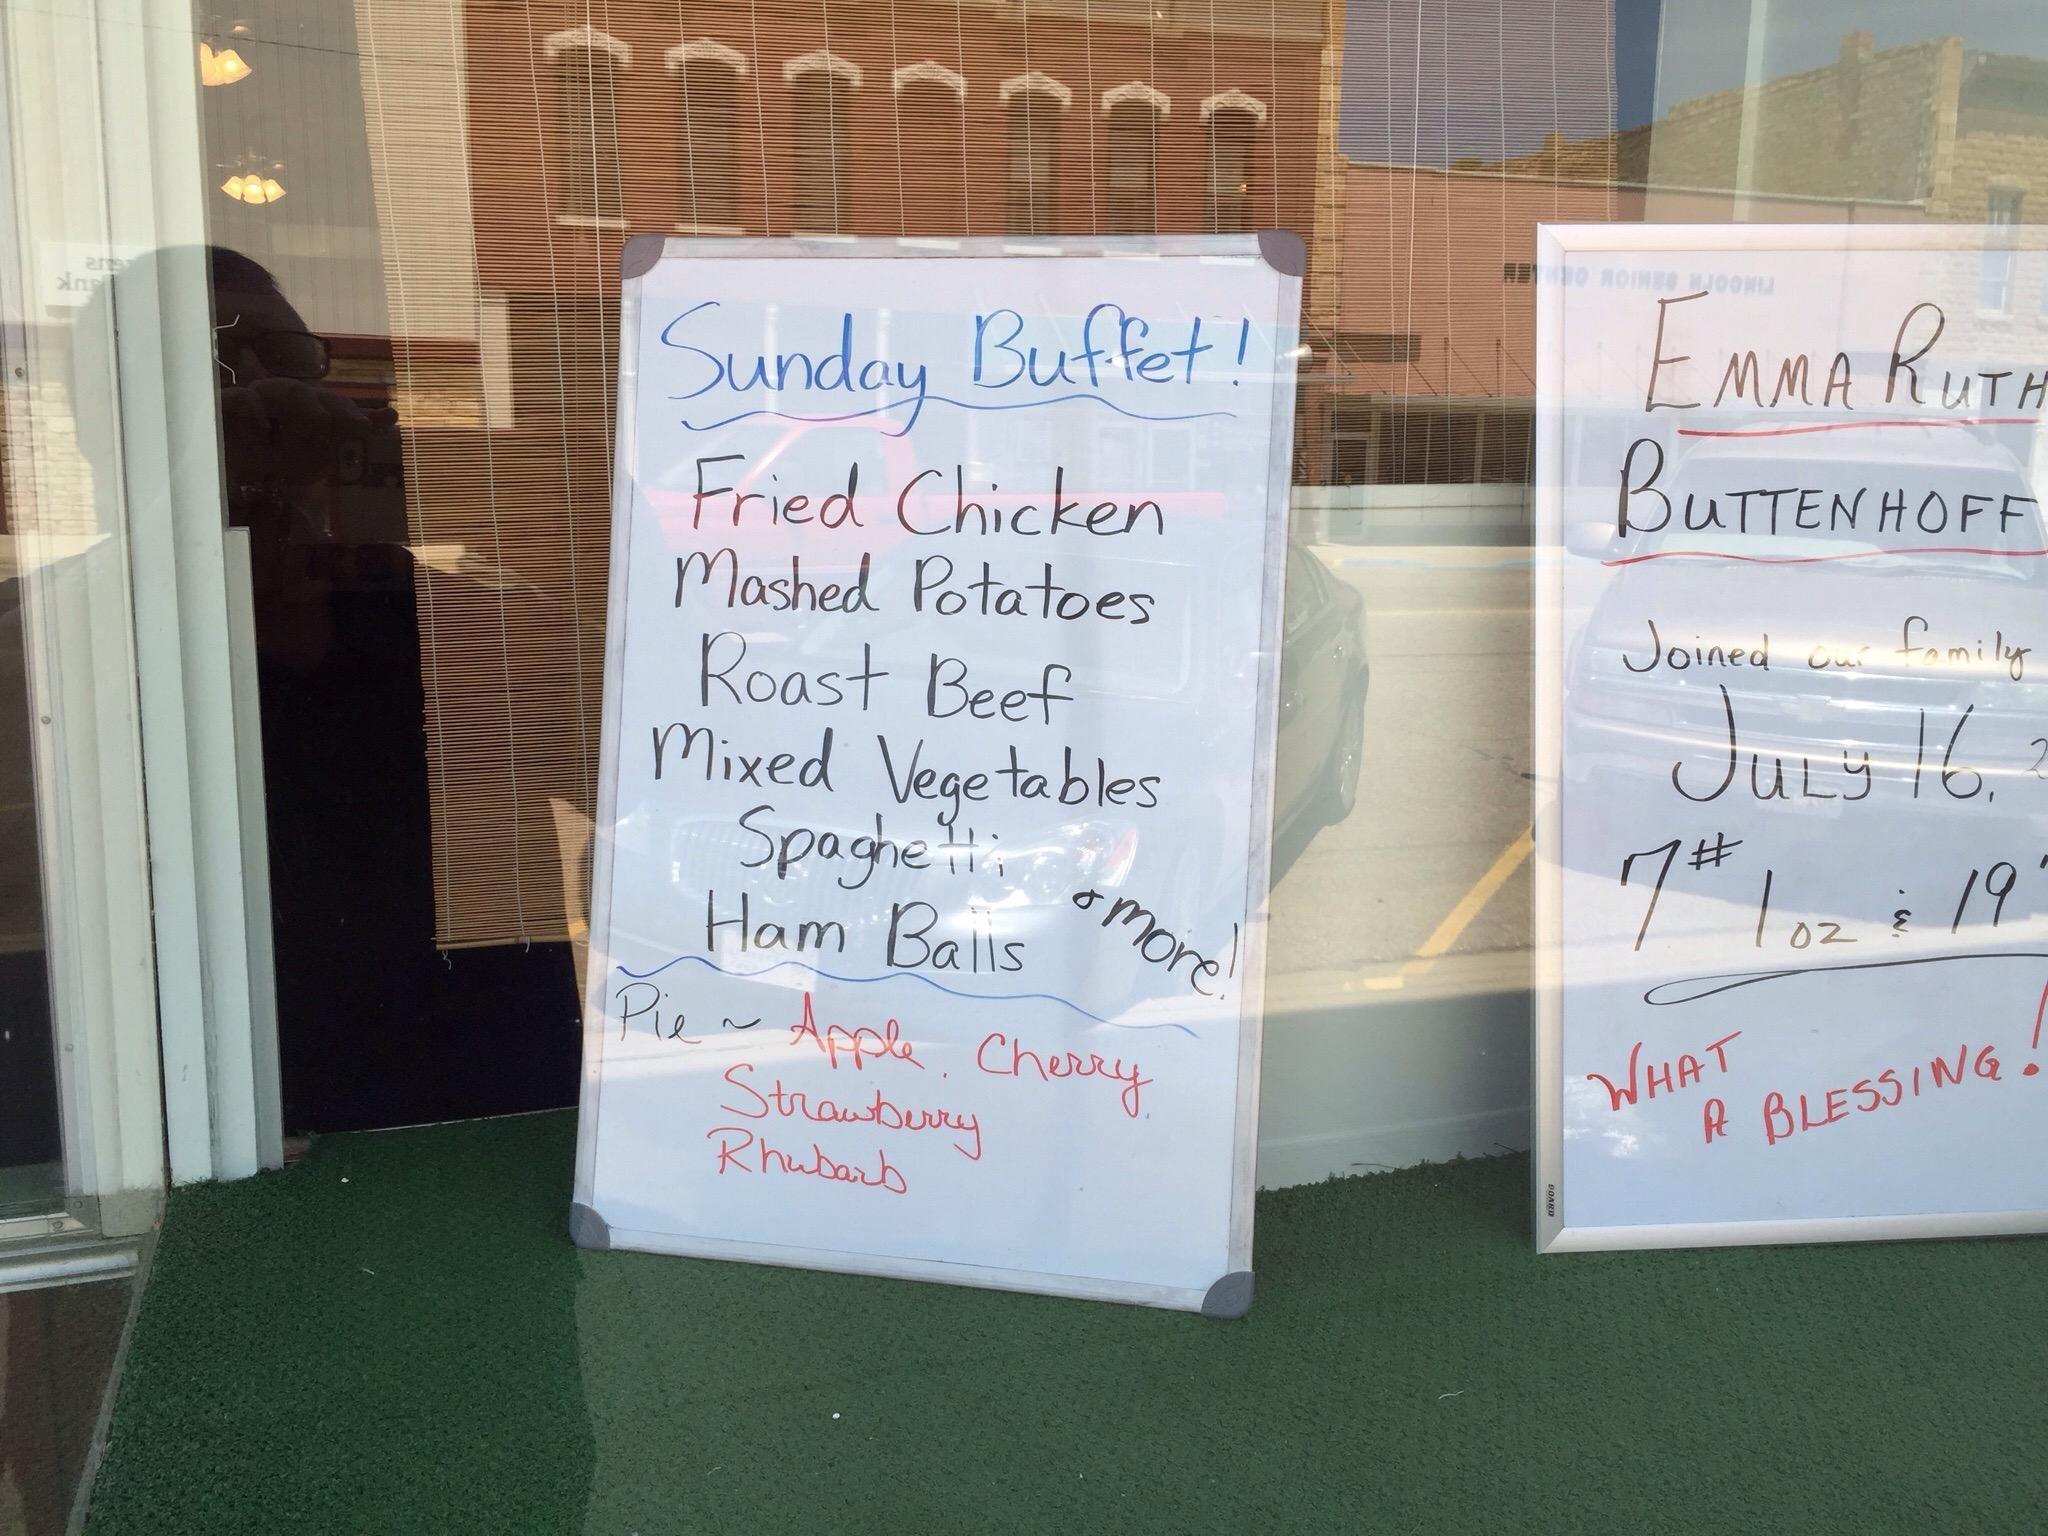 Sunday Buffet!
Fried Chicken
Mashed Potatoes
Roast Beef
Mixed Vegetables
Spaghetti
Ham Balls & more!
Pie ~ Apple, Cherry,
Strawberry
Rhubarb
EMMA RUTH
BUTTENHOFF
Joined our family
JULY 16, 2
7# 1 oz & 19"
WHAT
A BLESSING!
BOARD
LINCOLN SENIOR CENTER
zens
ank